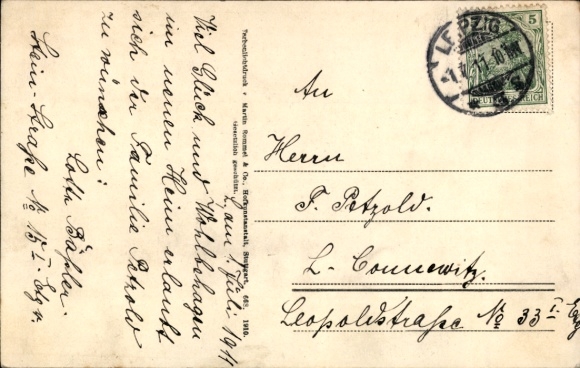 L. am 1. Juli 1911
Viel Glück und Wohlbehagen
im neuen Heim erlaubt
sich der Familie Petzold
zu wünschen:
Lotte
Stein-Straße No 15 I. Etg r.
Farbenlichtdruck v. Martin Rommel & Co., Hofkunstanstalt, Stuttgart. 668. 1910.
Gesetzlich geschützt.
LEIPZIG
11. 10
5
REICH
An
Herrn
F. Petzold.
L. Connewitz.
Leopoldstraße No 33 I. Etg